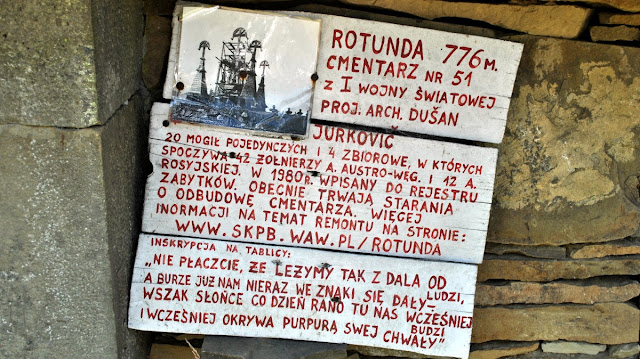 ROTUNDA 776 M.
CMENTARZ NR 51
Z I WOJNY ŚWIATOWEJ
PROJ. ARCH. DUŠAN
JURKOVIČ
20 MOGIŁ POJEDYNCZYCH I 4 ZBIOROWE, W KTÓRYCH
SPOCZYWA 42 ŻOŁNIERZY A. AUSTRO-WĘG. I 12 A.
ROSYJSKIEJ. W 1980R. WPISANY DO REJESTRU
ZABYTKÓW. OBECNIE TRWAJĄ STARANIA
O ODBUDOWĘ CMENTARZA. WIĘCEJ
INORMACJI NA TEMAT REMONTU NA STRONIE:
WWW.SKPB.WAW.PL/ROTUNDA
INSKRYPCJA NA TABLICY:
„NIE PŁACZCIE, ŻE LEŻYMY TAK Z DALA OD
LUDZI,
A BURZE JUŻ NAM NIERAZ WE ZNAKI SIĘ DAŁY–
WSZAK SŁOŃCE CO DZIEŃ RANO TU NAS WCZEŚNIEJ
BUDZI
I WCZEŚNIEJ OKRYWA PURPURĄ SWEJ CHWAŁY"